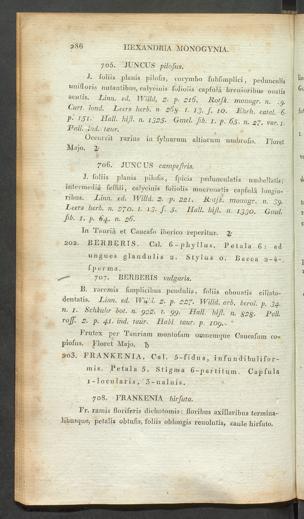 286 HEXANDRIA MONOGYNIA.
705. JUNCUS pilosus.
J. foliis planis pilosis, corymbo subsimplici, pedunculis
unifloris nutantibus, calycinis foliolis capsulâ brevioribus ovatis
acutis. Linn. ed. Willd. 2. p. 216. Rotſk. monogr. n. 9.
Curt. lond. Leers herb. n 268. t. 13. f. 10. Ehrh. calam. 6.
p. 151. Hall. hist. n. 1325. Gmel. sib. 1. p. 65. n. 27. var. 1.
Pall. Ind. taur.
Occurrit rarius in sylvarum altiorum umbrosis. Floret
Majo. ♃
706. JUNCUS campestris.
J. foliis planis pilosis, spicis pedunculatis umbellatis;
intermediâ sessili, calycinis foliolis mucronatis capsulâ longio-
ribus. Linn. ed. Willd. 2. p. 221. Rotſk. monogr. n. 39.
Leers herb. n. 270. t. 13. f. 5. Hall. hist. n. 1330. Gmel.
sib. 1. p. 64. n. 26.
In Tauriâ et Caucaso iberico reperitur. ♃
202. BERBERIS. Cal. 6-phyllus. Petala 6: ad
ungues glandulis 2. Stylus 0. Bacca 2-4-
sperma.
707. BERBERIS vulgaris.
B. racemis simplicibus pendulis, foliis obovatis ciliato-
dentatis. Linn. ed. Willd. 2. p. 227. Willd. arb. berol. p. 34.
n. 1. Schkuhr bot. n. 902. t. 99. Hall. hist. n. 828. Pall.
ross. 2. p. 41. ind. taur. Habl. taur. p. 109.
Frutex per Tauriam montosam omnemque Caucasum co-
piosus. Floret Majo. ♄
203. FRANKENIA. Cal. 5-fidus, infundibulifor-
mis. Petala 5. Stigma 6-partitum. Capsula
1-locularis, 3-valvis.
708. FRANKENIA hirsuta.
Fr. ramis floriferis dichotomis: floribus axillaribus termina-
libusque, petalis obtusis, foliis oblongis revolutis, caule hirsuto.